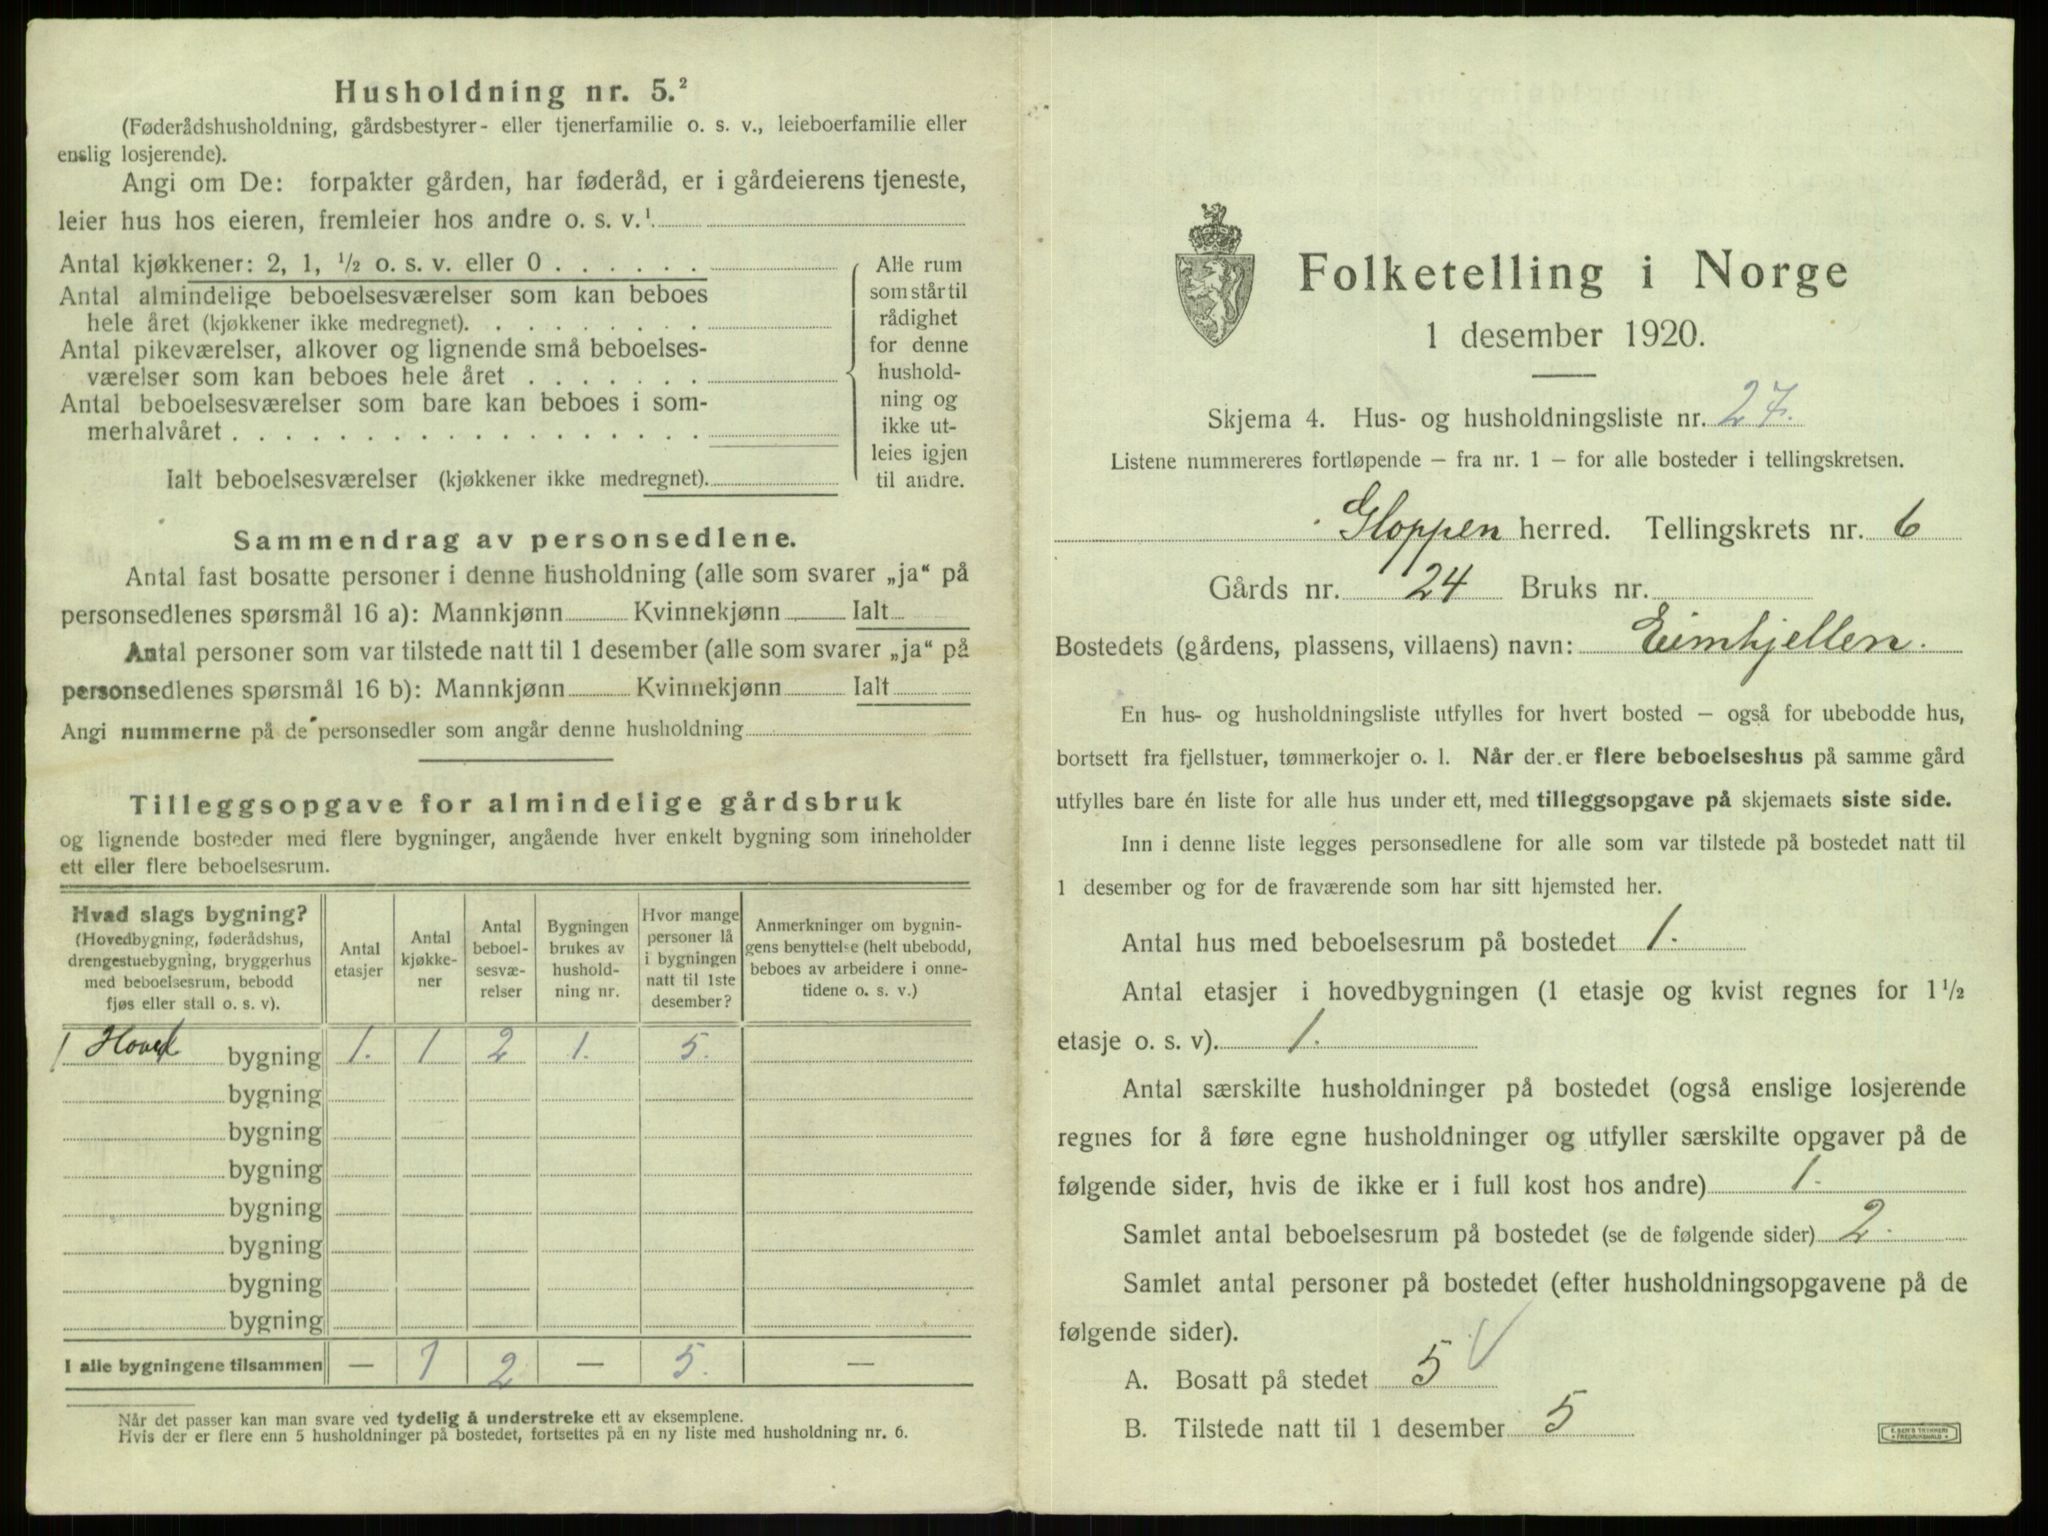 Husholdning nr. 5.²
(Føderådshusholdning, gårdsbestyrer- eller tjenerfamilie o. s. v., leieboerfamilie eller
enslig losjerende).
Angi om De: forpakter gården, har føderåd, er i gårdeierens tjeneste,
leier hus hos eieren, fremleier hos andre o. s. v.¹
Antal kjøkkener: 2, 1, ½ o. s. v. eller 0 . . . . . .
Antal almindelige beboelsesværelser som kan beboes
hele året (kjøkkener ikke medregnet). . . . . . . . .
Antal pikeværelser, alkover og lignende små beboelses-
værelser som kan beboes hele året . . . . . . .
Antal beboelsesværelser som bare kan beboes i som-
merhalvåret . . . . . . . . . . . . . . . . . .
Ialt beboelsesværelser (kjøkkener ikke medregnet).
Alle rum
som står til
rådighet
for denne
hushold-
ning og
ikke ut-
leies igjen
til andre.
Sammendrag av personsedlene.
Antal fast bosatte personer i denne husholdning (alle som svarer „ja“ på
personsedlenes spørsmål 16 a): Mannkjønn Kvinnekjønn Ialt
Antal personer som var tilstede natt til 1 desember (alle som svarer „ja“ på
personsedlenes spørsmål 16 b): Mannkjønn Kvinnekjønn Ialt
Angi nummerne på de personsedler som angår denne husholdning
Tilleggsopgave for almindelige gårdsbruk
og lignende bosteder med flere bygninger, angående hver enkelt bygning som inneholder
ett eller flere beboelsesrum.
Hvad slags bygning?
(Hovedbygning, føderådshus,
drengestuebygning, bryggerhus
med beboelsesrum, bebodd
fjøs eller stall o. s. v).
Antal
etasjer
Antal
kjøkke-
ner
Antal
beboel-
sesvæ-
relser
Bygningen
brukes av
hushold-
ning nr.
Hvor mange
personer lå
i bygningen
natt til 1ste
desember?
Anmerkninger om bygnin-
gens benyttelse (helt ubebodd,
beboes av arbeidere i onne-
tidene o. s. v.)
1 Hoved bygning 1. 1 2 1. 5.
bygning
bygning
bygning
bygning
bygning
bygning
bygning
I alle bygningene tilsammen — 1 2 — 5. —
Når det passer kan man svare ved tydelig å understreke ett av eksemplene.
Hvis der er flere enn 5 husholdninger på bostedet, fortsettes på en ny liste med husholdning nr. 6.
Folketelling i Norge
1 desember 1920.
Skjema 4. Hus- og husholdningsliste nr. 27.
Listene nummereres fortløpende – fra nr. 1 – for alle bosteder i tellingskretsen.
Gloppen herred. Tellingskrets nr. 6
Gårds nr. 24 Bruks nr.
Bostedets (gårdens, plassens, villaens) navn: Eimhjellen.
En hus- og husholdningsliste utfylles for hvert bosted – også for ubebodde hus,
bortsett fra fjellstuer, tømmerkojer o. l. Når der er flere beboelseshus på samme gård
utfylles bare én liste for alle hus under ett, med tilleggsopgave på skjemaets siste side.
Inn i denne liste legges personsedlene for alle som var tilstede på bostedet natt til
1 desember og for de fraværende som har sitt hjemsted her.
Antal hus med beboelsesrum på bostedet 1.
Antal etasjer i hovedbygningen (1 etasje og kvist regnes for 1½
etasje o. s. v). 1.
Antal særskilte husholdninger på bostedet (også enslige losjerende
regnes for å føre egne husholdninger og utfyller særskilte opgaver på de
følgende sider, hvis de ikke er i full kost hos andre) 1.
Samlet antal beboelsesrum på bostedet (se de følgende sider) 2.
Samlet antal personer på bostedet (efter husholdningsopgavene på de
følgende sider).
A. Bosatt på stedet 5
B. Tilstede natt til 1 desember 5
E. SEM'S TRYKKERI
FREDRIKSHALD